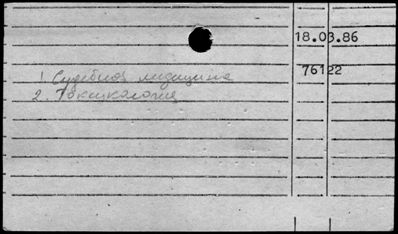 18.03.86
76122
1. Судебная медицина
2. Токсикология